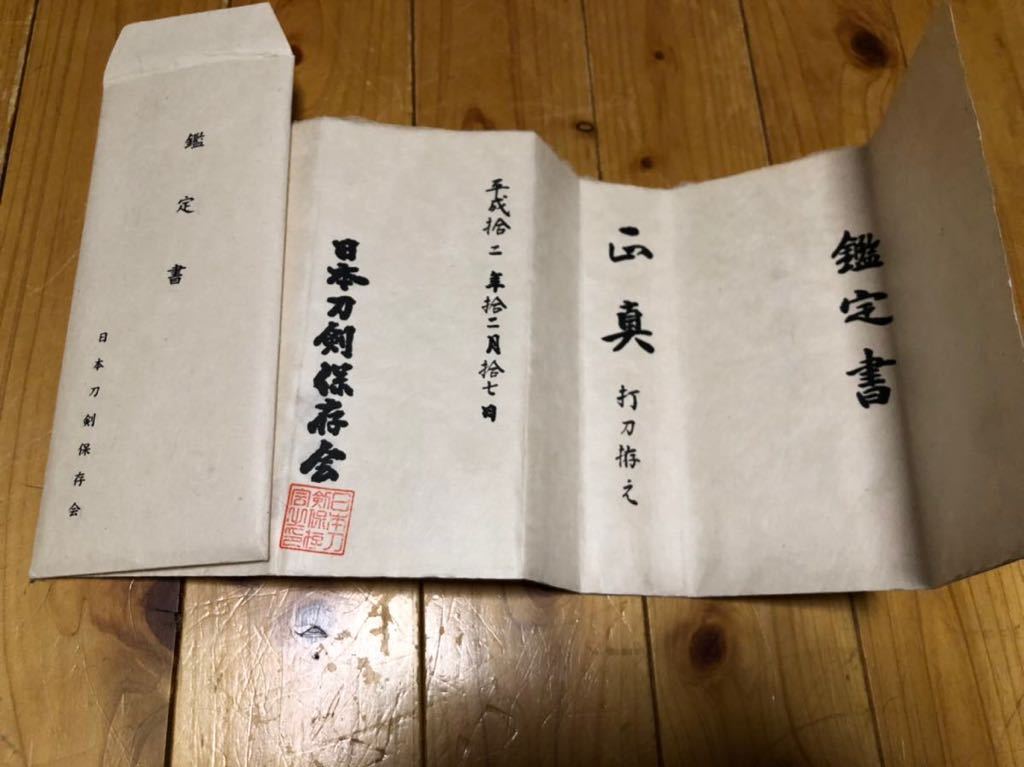 鑑定書
正真 打刀拵え
平成拾二年拾二月拾七日
日本刀剣保存会
日本刀
剣保存
会之印
鑑定書
日本刀剣保存会